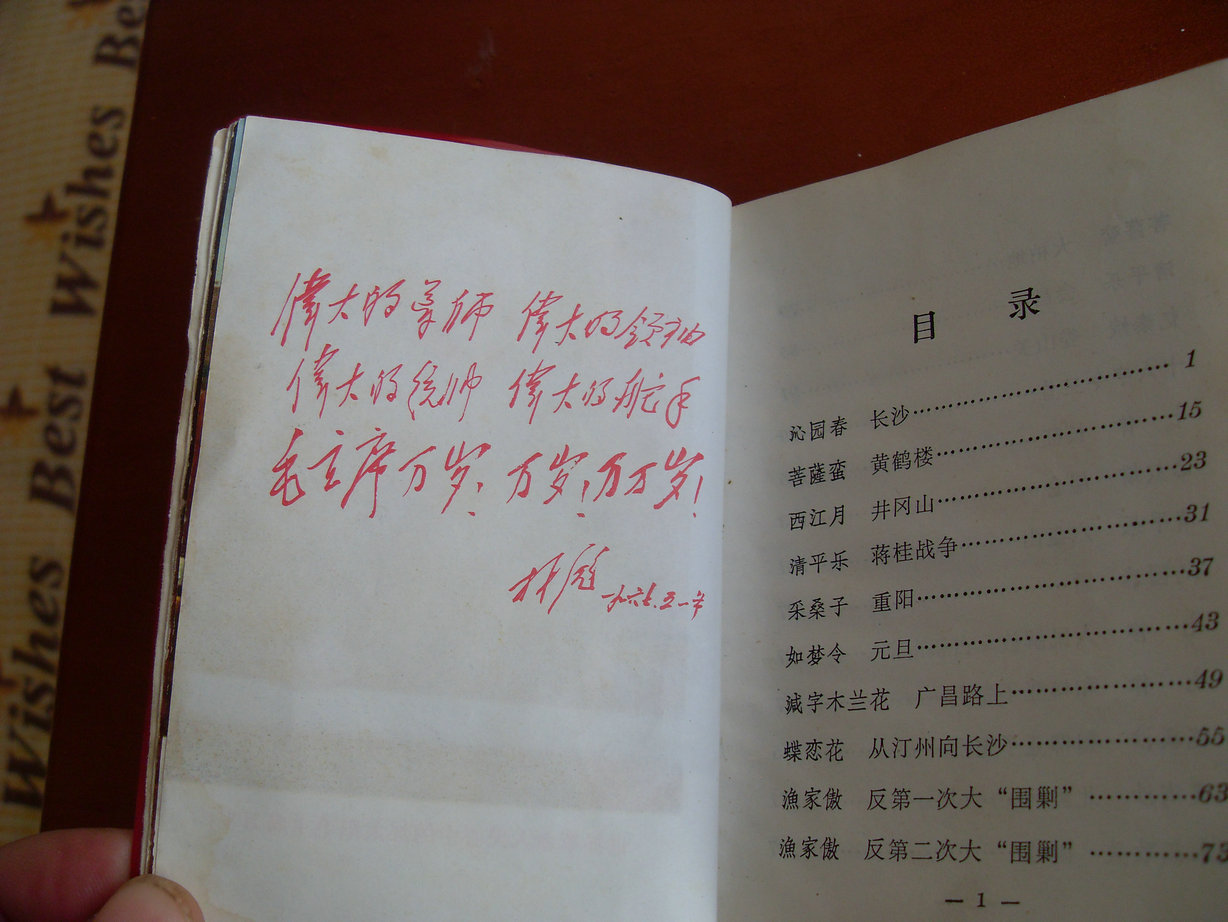 Best Wishes Best Wishes Best
偉大的导师 偉大的領袖
偉大的统帅 偉大的舵手
毛主席万岁!万岁!万万岁!
林彪 一九六七.五.一六
目 录
沁园春 长沙……………………………… 1
菩薩蛮 黄鹤楼……………………………15
西江月 井冈山……………………………23
清平乐 蒋桂战争…………………………31
采桑子 重阳………………………………37
如梦令 元旦………………………………43
減字木兰花 广昌路上……………………49
蝶恋花 从汀州向长沙……………………55
漁家傲 反第一次大“围剿” …………63
漁家傲 反第二次大“围剿” …………73
— 1 —